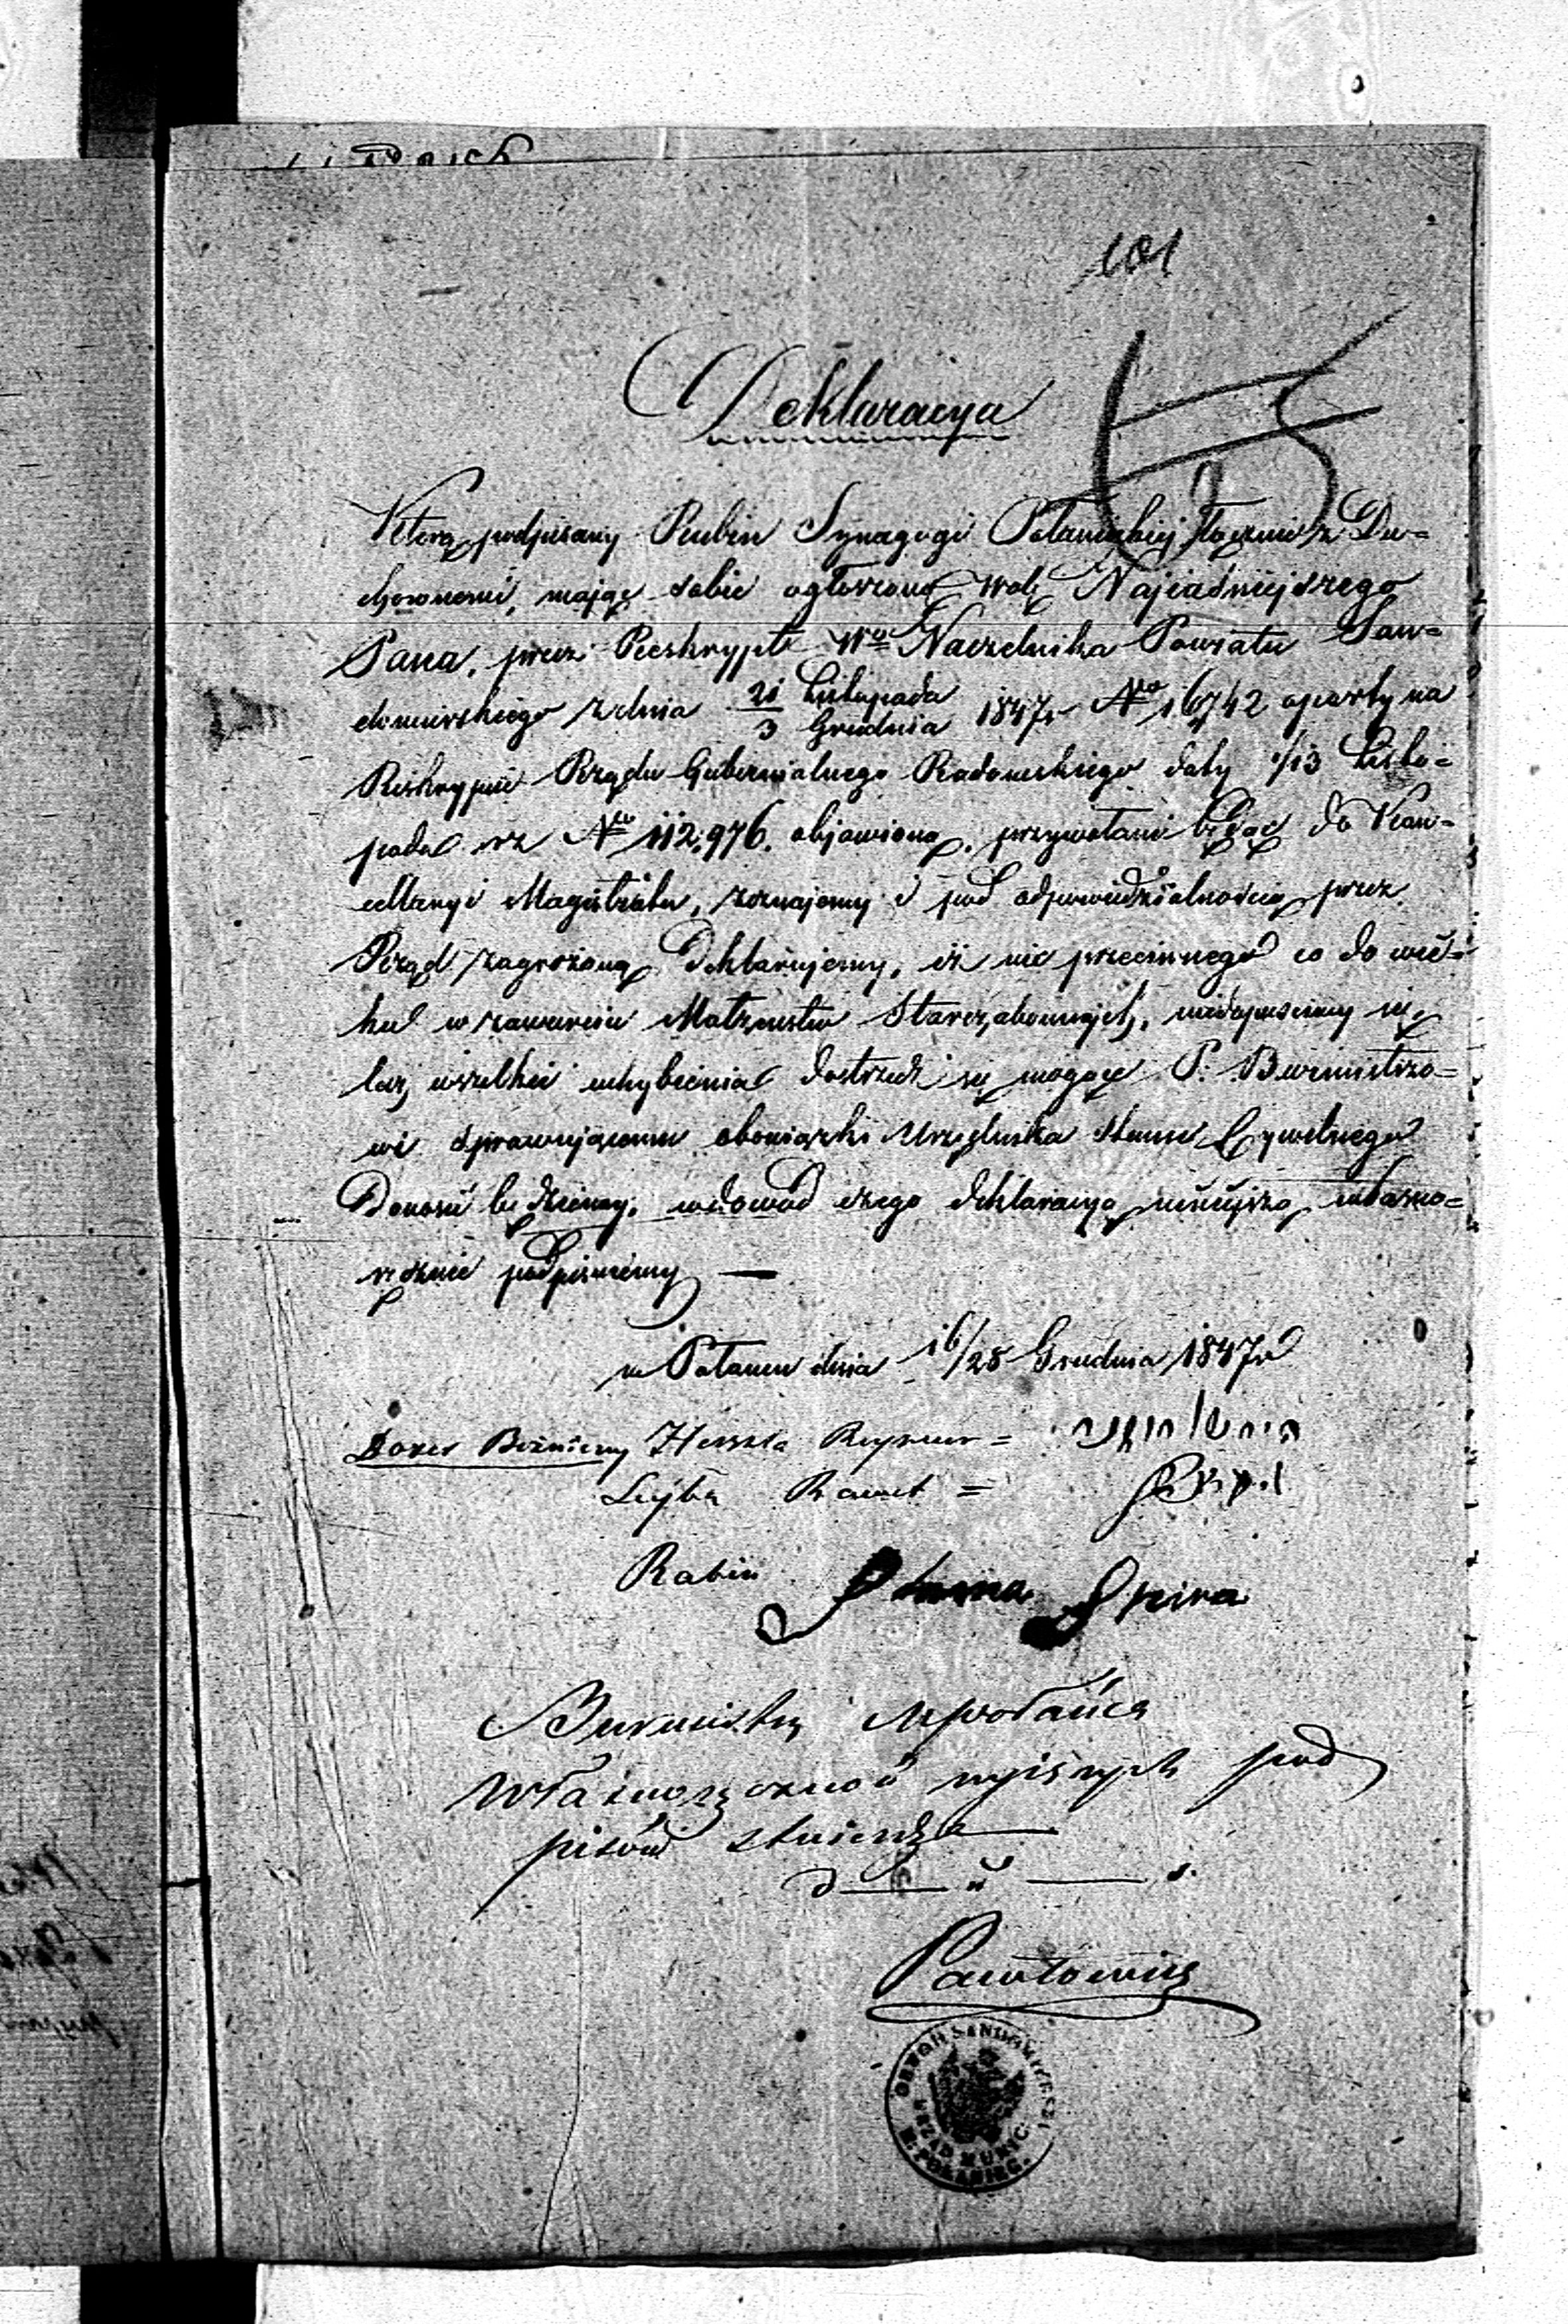 101
Deklaracya
Którą podpisany Rabin Synagogi Połanieckiej łącznie z Du-
chownemi, mając sobie ogłoszoną wolę Najiaśniejszego
Pana, przez Reskrypt Wo Naczelnika Powiatu San-
domirskiego z dnia 21 Listopada / 3 Grudnia 1847r No 16742 oparty na
Reskrypcie Rządu Gubernialnego Radomskiego daty 1/13 Listo-
pada rz No 112,976. objawioną, przywołani będąc do Kan-
cellaryi Magistratu, zeznajemy i pod odpowiedzialnością przez
Rząd zagrożoną Deklarujemy, iż nic przeciwnego co do wie-
ku w zawarciu Małżeństw Starozakonnych, niedopuściemy się,
lecz wszelkie uchybienia dostrzedz się mogące P. Burmistrzo-
wi sprawującemu obowiązki Urzędnika Stanu Cywilnego
Donosić będziemy, wdowód czego deklaracyą niniejszą własno-
ręcznie podpisuiemy —
w Połańcu dnia 16/28 Grudnia 1847r
Dozor Bożniczy Herszla =
Leyba =
Rabin Szpira
Burmistrz
Własnoręczność wyiśzych pod
pisów stwierdza
Pawłowicz
OBWOD SANDOMIERSKI
URZĄD MUNIC.
M. POŁANIEC.